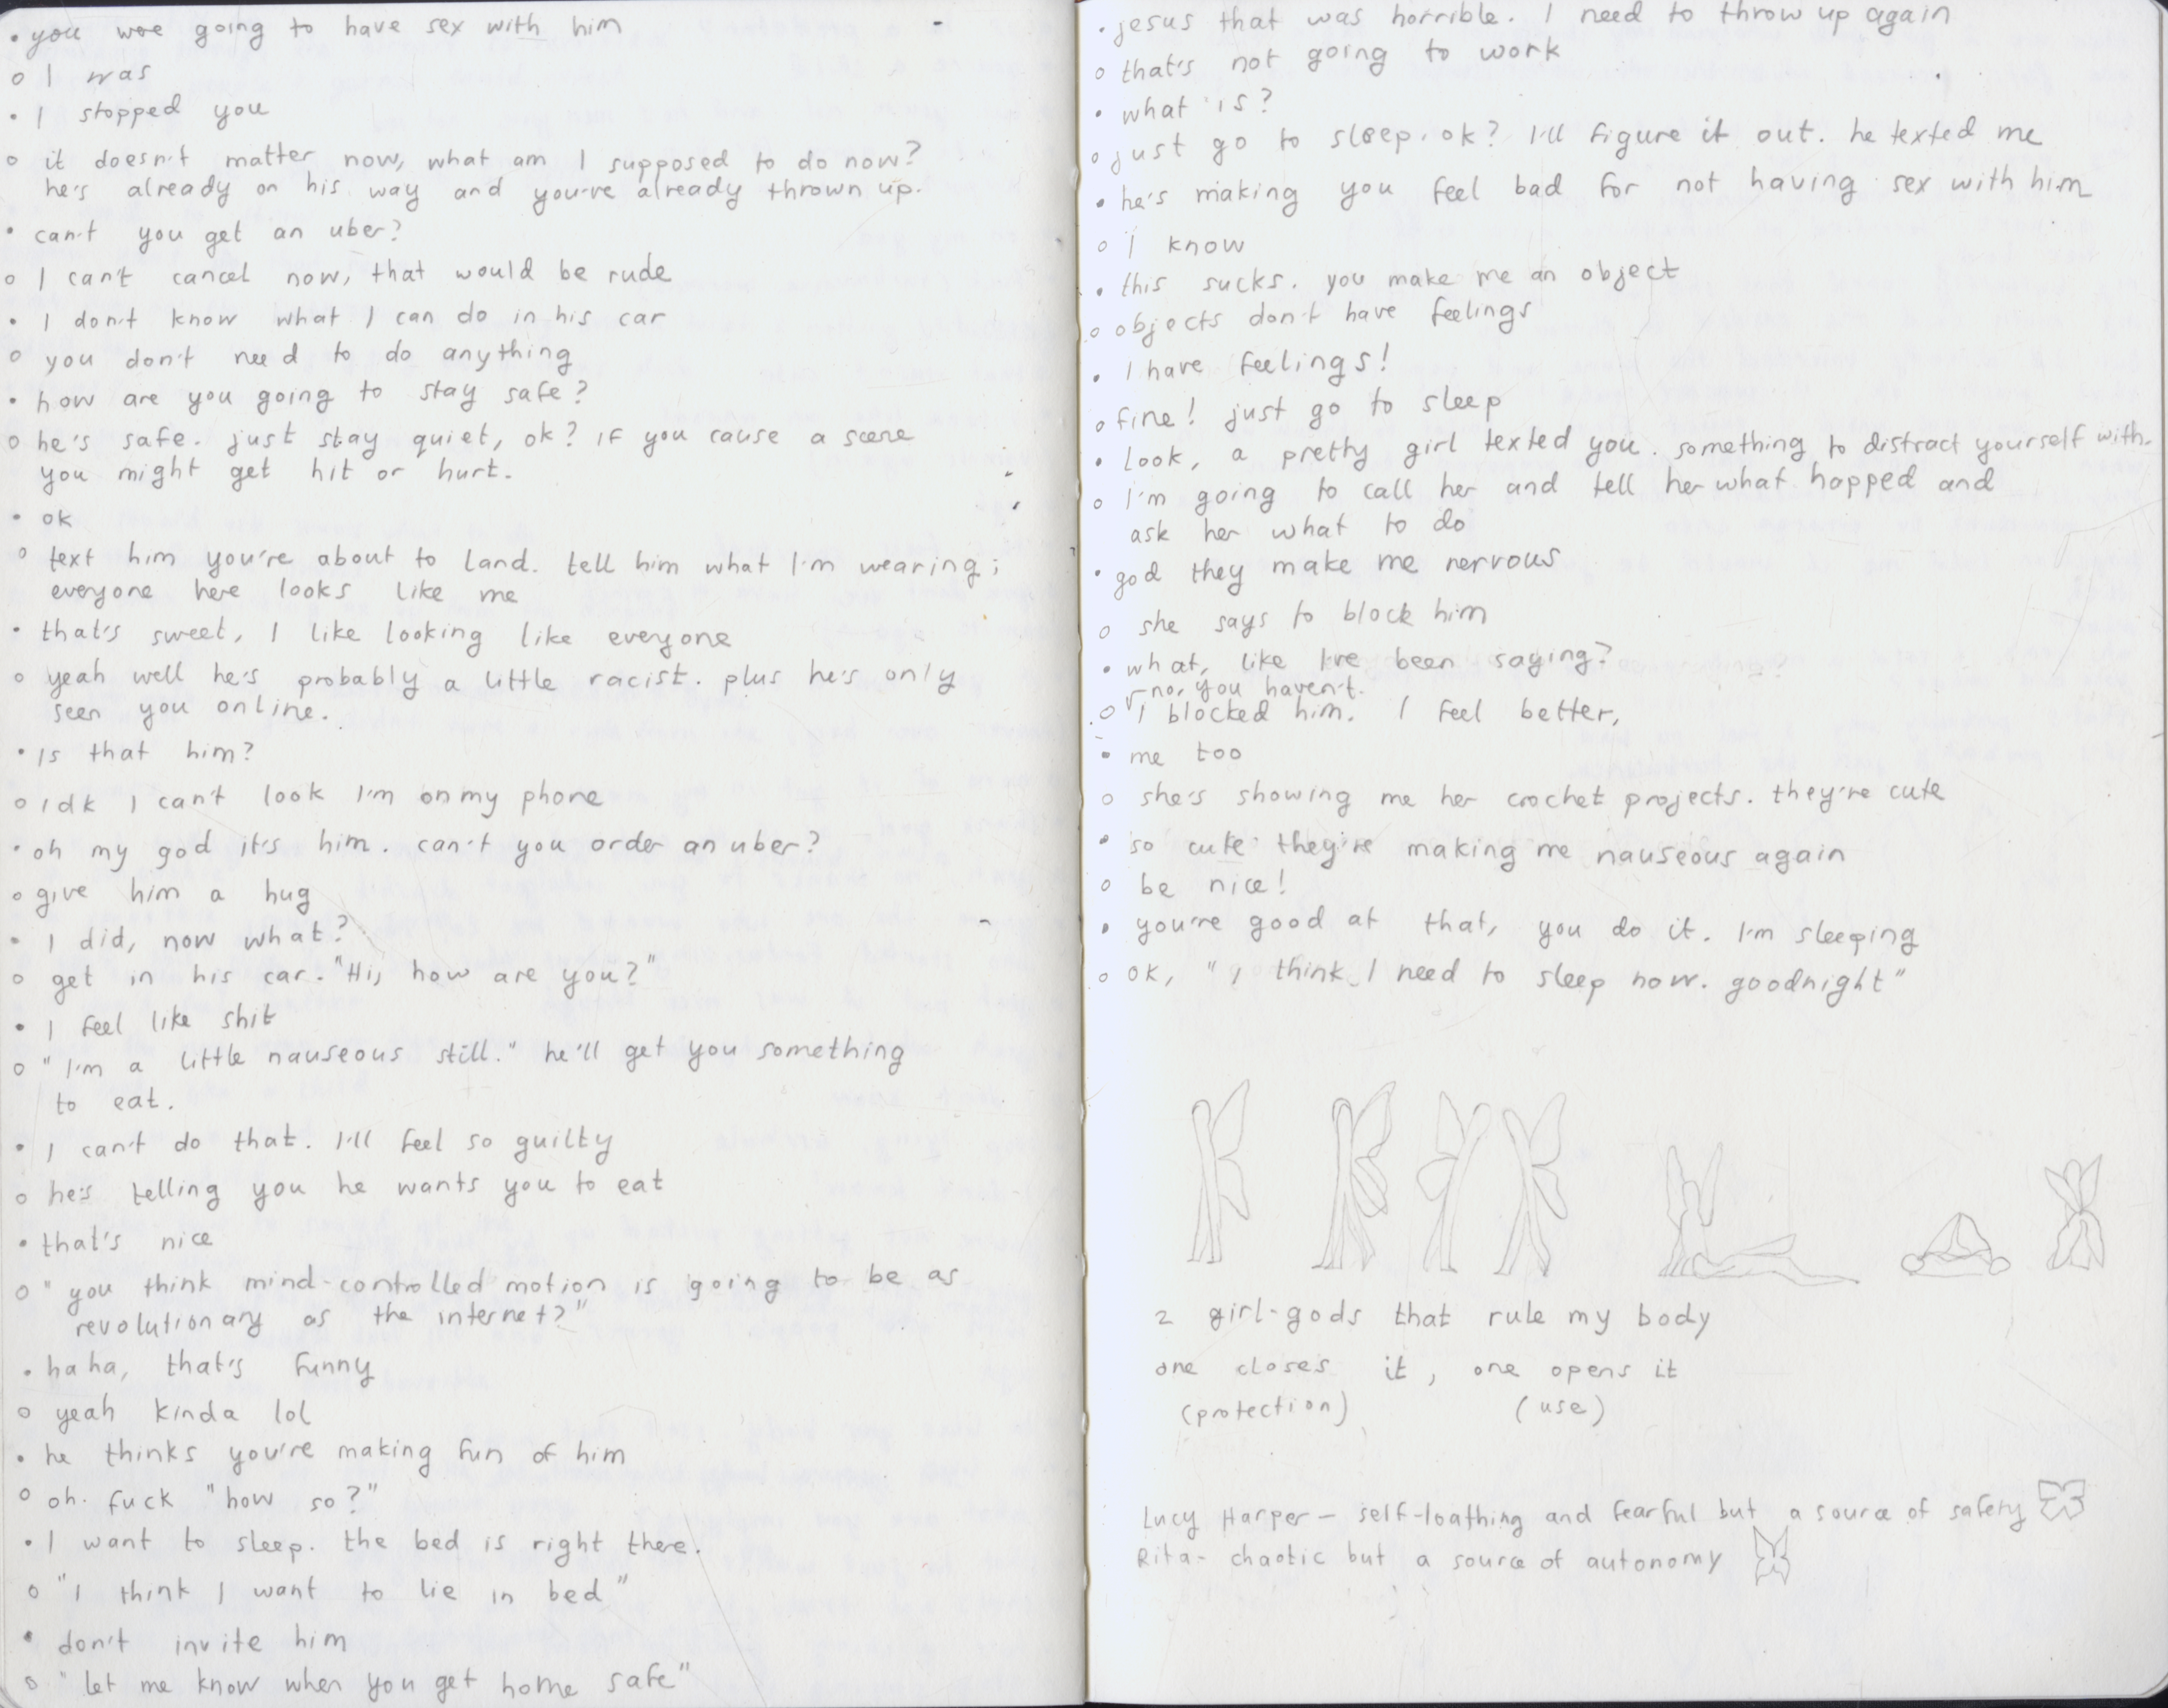 • you were going to have sex with him
o I was
• I stopped you
o it doesn't matter now, what am I supposed to do now?
he's already on his way and you've already thrown up.
• can't you get an uber?
o I can't cancel now, that would be rude
• I don't know what I can do in his car
o you don't need to do anything
• how are you going to stay safe?
o he's safe. just stay quiet, ok? if you cause a scene
you might get hit or hurt.
• ok
o text him you're about to land. tell him what I'm wearing;
everyone here looks like me
• that's sweet, I like looking like everyone
o yeah well he's probably a little racist. plus he's only
seen you online.
• is that him?
o idk I can't look I'm on my phone
• oh my god it's him. can't you order an uber?
o give him a hug
• I did, now what?
o get in his car. "Hi, how are you?"
• I feel like shit
o "I'm a little nauseous still." he'll get you something
to eat.
• I can't do that. I'll feel so guilty
o he's telling you he wants you to eat
• that's nice
o "you think mind-controlled motion is going to be as
revolutionary as the internet?"
• haha, that's funny
o yeah kinda lol
• he thinks you're making fun of him
o oh. fuck "how so?"
• I want to sleep. the bed is right there.
o "I think I want to lie in bed"
• don't invite him
o "let me know when you get home safe"
• jesus that was horrible. I need to throw up again
o that's not going to work
• what is?
o just go to sleep, ok? I'll figure it out. he texted me
• he's making you feel bad for not having sex with him
o I know
• this sucks. you make me an object
o objects don't have feelings
• I have feelings!
o fine! just go to sleep
• look, a pretty girl texted you. something to distract yourself with.
o I'm going to call her and tell her what happed and
ask her what to do
• god they make me nervous
o she says to block him
• what, like I've been saying?
no, you haven't.
o I blocked him. I feel better,
• me too
o she's showing me her crochet projects. they're cute
• so cute they're making me nauseous again
o be nice!
• you're good at that, you do it. I'm sleeping
o ok, "I think I need to sleep now. goodnight"
2 girl-gods that rule my body
one closes it, one opens it
(protection) (use)
Lucy Harper - self-loathing and fearful but a source of safety
Rita - chaotic but a source of autonomy